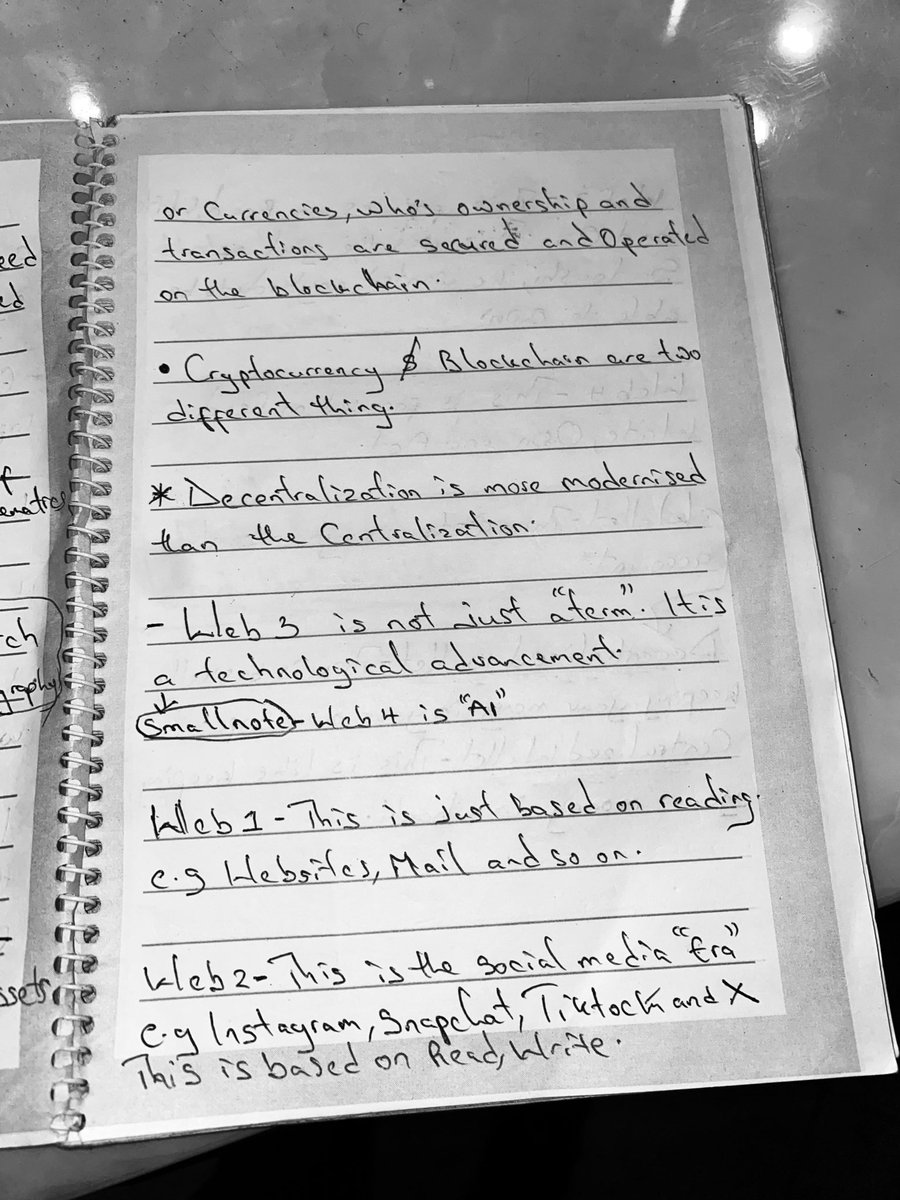 or Currencies, who's ownership and
transactions are secured and Operated
on the blockchain.
• Cryptocurrency & Blockchain are two
different thing.
* Decentralization is more modernised
than the Centralization.
- Web 3 is not just "a term". It is
a technological advancement.
Smallnote - Web 4 is "AI"
Web 1 - This is just based on reading.
e.g Websites, Mail and so on.
Web 2 - This is the social media "Era"
e.g Instagram, Snapchat, Tiktock and X
This is based on Read, Write.
eed
ed
f
ematics
ch
graphy
ssets